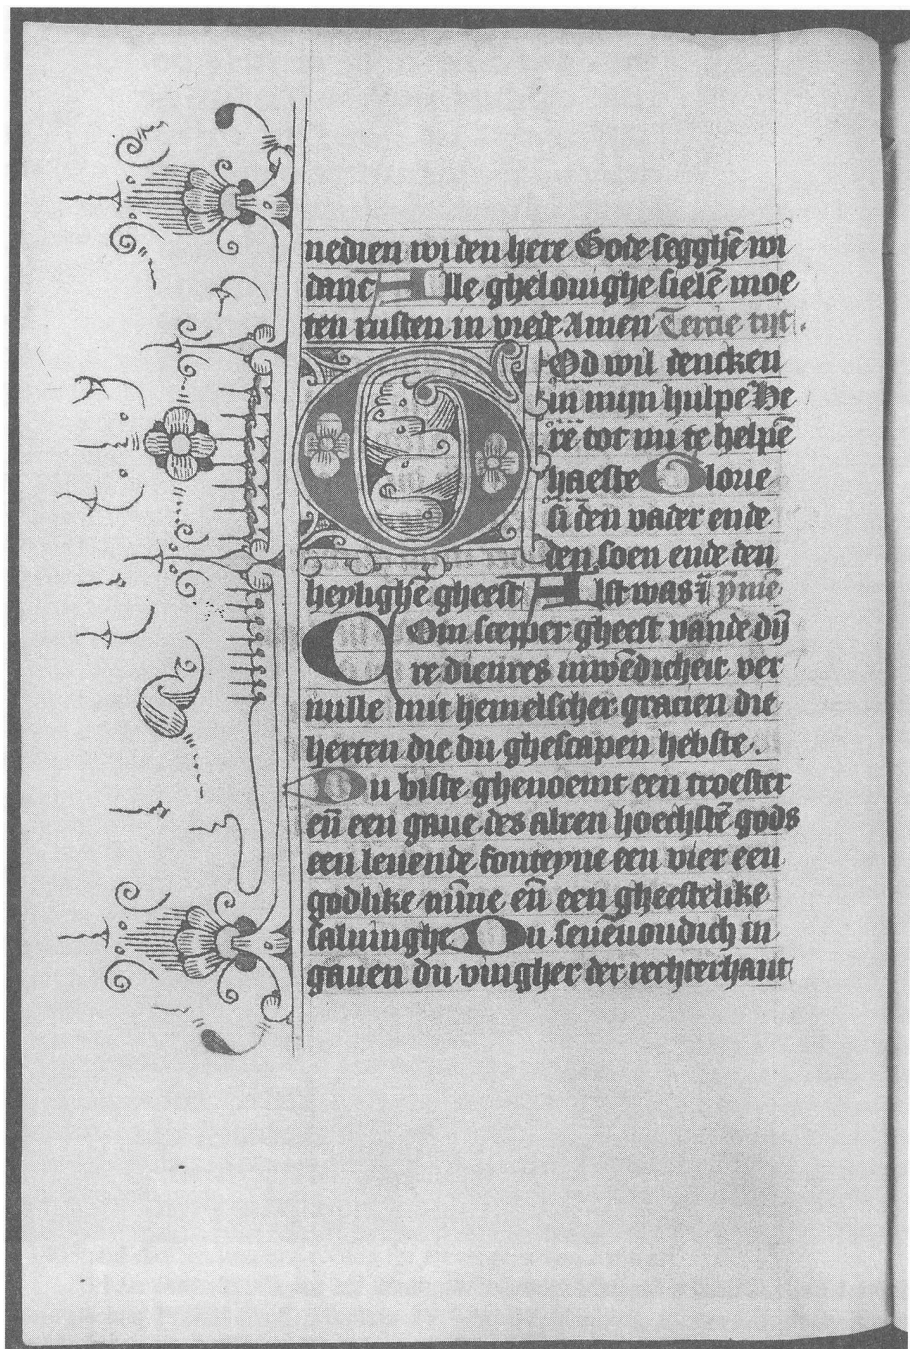 nedien wi den here Gode segghē wi
danc Alle ghelouighe sielē moe
ten rusten in vrede Amen Tercie tijt.
GOd wil dencken
in mijn hulpe He
re tot mi te helpē
haeste Glorie
si den vader ende
den soen ende den
heylighē gheest Alst was ī ymē
COm scepper gheest vande dijn
re dienres inwēdicheit ver
uulle mit hemelscher gracien die
herten die du ghescapen hebste.
Du biste ghenoemt een troester
en̄ een gaue des alren hoechstē gods
een leuende fonteyne een vier een
godlike mīne en̄ een gheestelike
saluinghe Du seuēuondich in
gauen du vingher der rechterhant